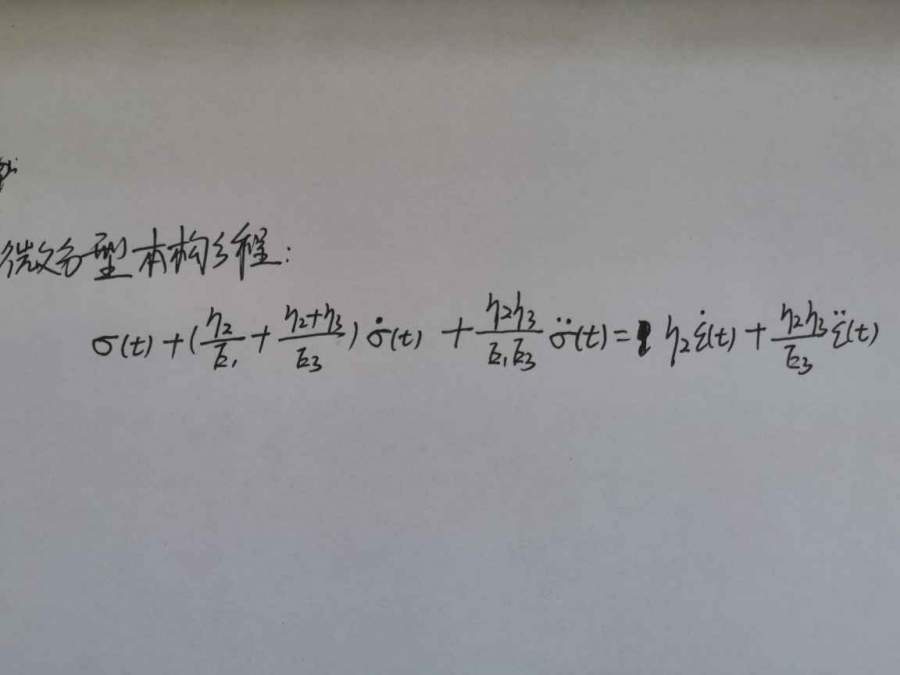 微分型本构方程:
σ(t) + (η₂/E₁ + (η₂+η₃)/E₃) σ̇(t) + (η₂η₃)/(E₁E₃) σ̈(t) = η₂ε̇(t) + (η₂η₃)/E₃ ε̈(t)